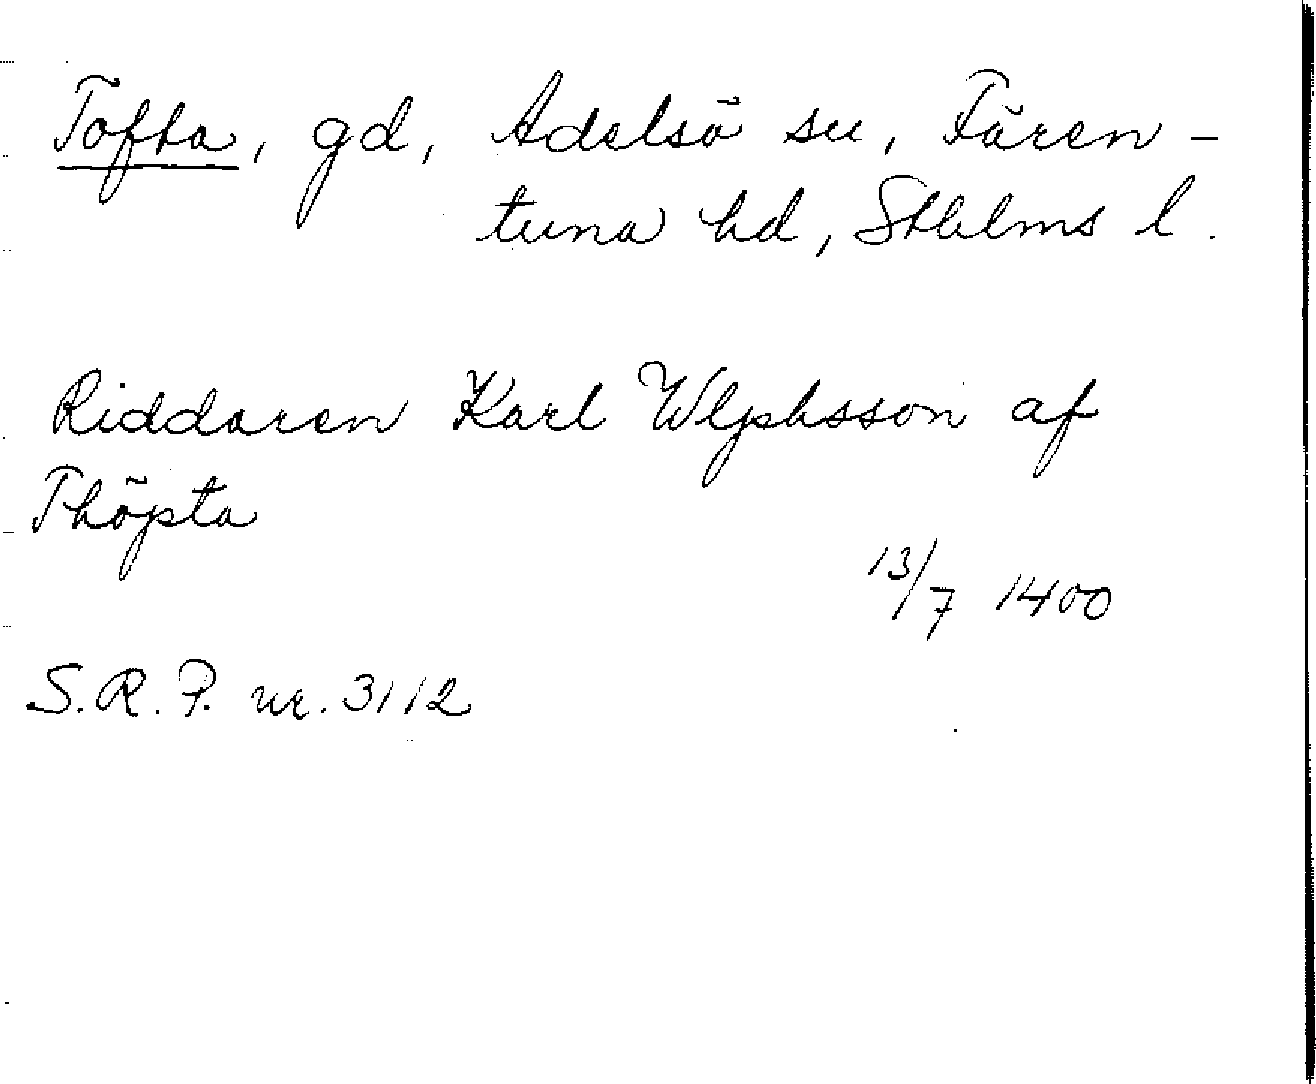 Tofta, gd, Adelsö sn, Fären-
tuna hd, Sthlms l.
Riddaren Karl Wlphsson af
Thöpta
13/7 1400
S.R.P. nr. 3112